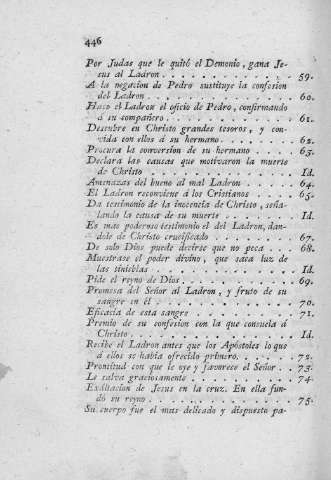 446
Por Judas que le quitó el Demonio, gana Je-
sus al Ladron . . . . . . . . . . . . 59.
A la negacion de Pedro sustituye la confesion
del Ladron . . . . . . . . . . . . . 60.
Hace el Ladron el oficio de Pedro, confirmando
á su compañero . . . . . . . . . . . 61.
Descubre en Christo grandes tesoros, y con-
vida con ellos á su hermano . . . . . . 62.
Procura la conversion de su hermano . . . 63.
Declara las causas que motivaron la muerte
de Christo . . . . . . . . . . . . . Id.
Amenazas del bueno al mal Ladron . . . . 64.
El Ladron reconviene á los Cristianos . . . 65.
Da testimonio de la inocencia de Christo, seña-
lando la causa de su muerte . . . . . . Id.
Es mas poderoso testimonio el del Ladron, dan-
dole de Christo crucificado . . . . . . . 67.
De solo Dios puede decirse que no peca . . . 68.
Muestrase el poder divino, que saca luz de
las tinieblas . . . . . . . . . . . . Id.
Pide el reyno de Dios . . . . . . . . . 69.
Promesa del Señor al Ladron, y fruto de su
sangre en él . . . . . . . . . . . . 70.
Eficacia de esta sangre . . . . . . . . 71.
Premio de su confesion con la que consuela á
Christo . . . . . . . . . . . . . . Id.
Recibe el Ladron antes que los Apóstoles lo que
á ellos se habia ofrecido primero. . . . . 72.
Prontitud con que le oye y favorece el Señor . . 73.
Le salva graciosamente . . . . . . . . 74.
Exâltacion de Jesus en la cruz. En ella fun-
dó su reyno . . . . . . . . . . . . 75.
Su cuerpo fue el mas delicado y dispuesto pa-